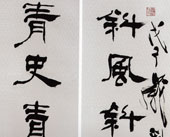 斜風斜
青史青
戊子